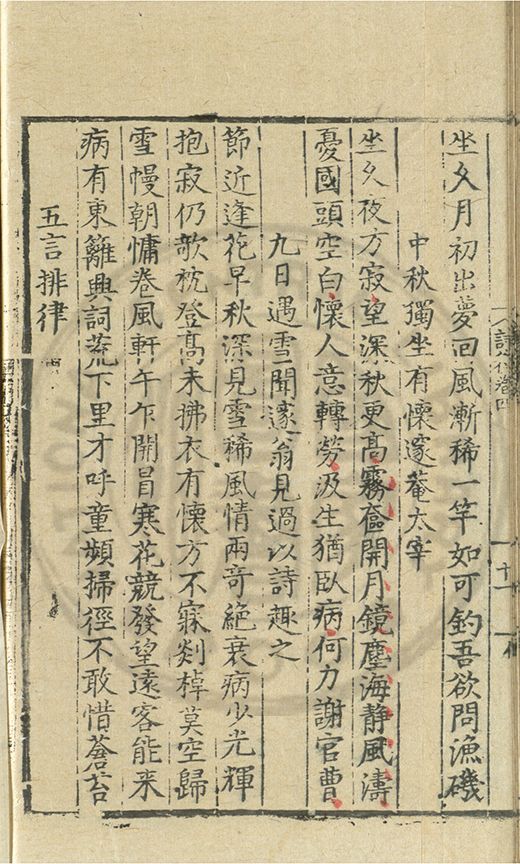 坐久月初出夢回風漸稀一竿如可釣吾欲問漁磯
中秋獨坐有懷邃菴太宰
坐久夜方寂望深秋更高霧奩開月鏡塵海静風濤
憂國頭空白懷人意轉勞汲生猶臥病何力謝官曹
九日遇雪聞邃翁見過以詩趣之
節近逢花早秋深見雪稀風情兩奇絕衰病少光輝
抱寂仍欹枕登高未拂衣有懷方不寐剡棹莫空歸
雪慢朝慵卷風軒午乍開冒寒花競發望遠客能来
病有東籬興詞荒下里才呼童頻掃徑不敢惜蒼苔
五言排律